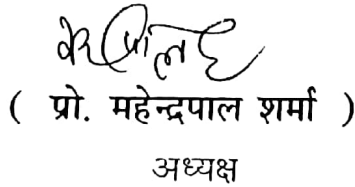 ( प्रो. महेन्द्रपाल शर्मा )
अध्यक्ष